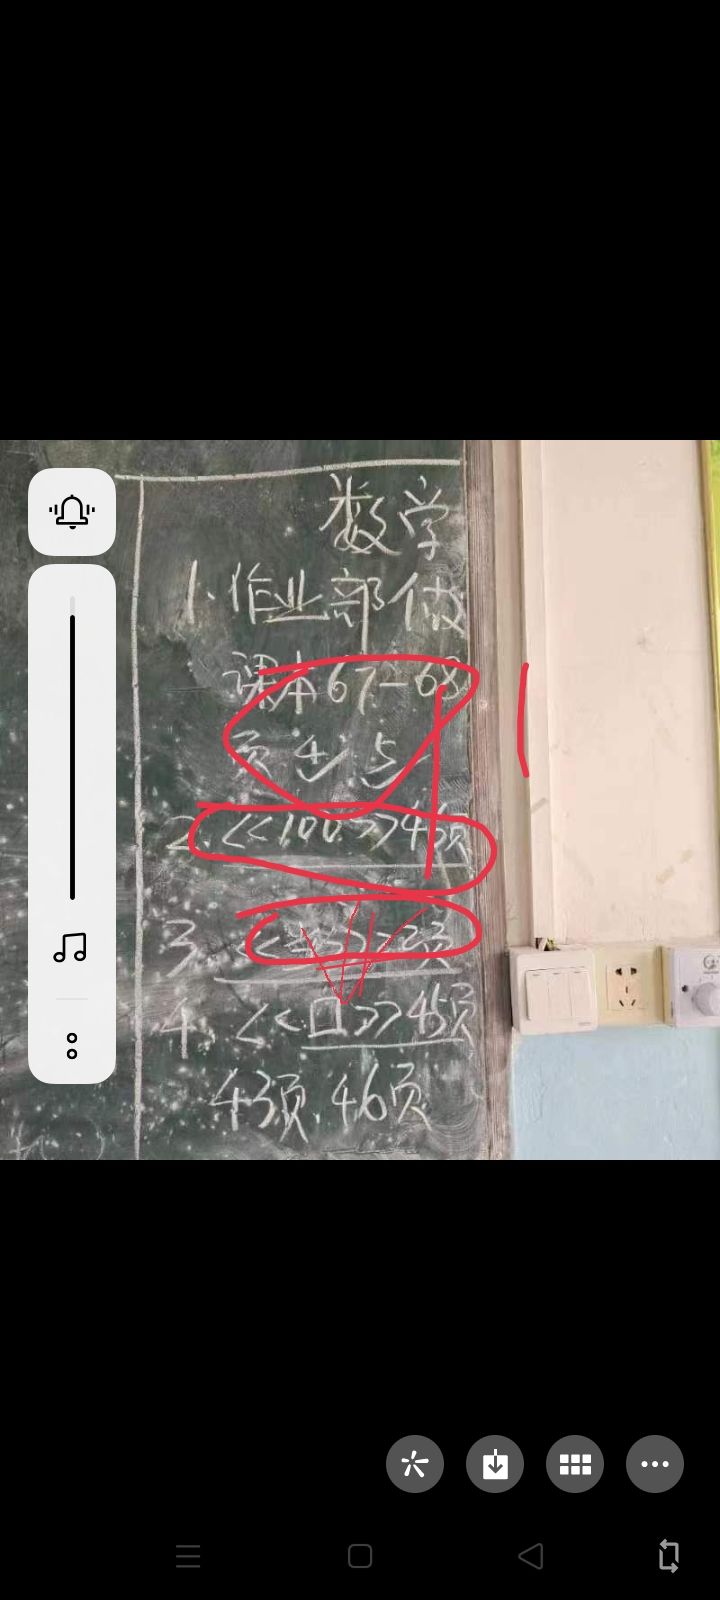 数学
1.作业部做
课本67-68
页4、5
2.<<100>>46页
3.
4.<<口>>45页
43页.46页